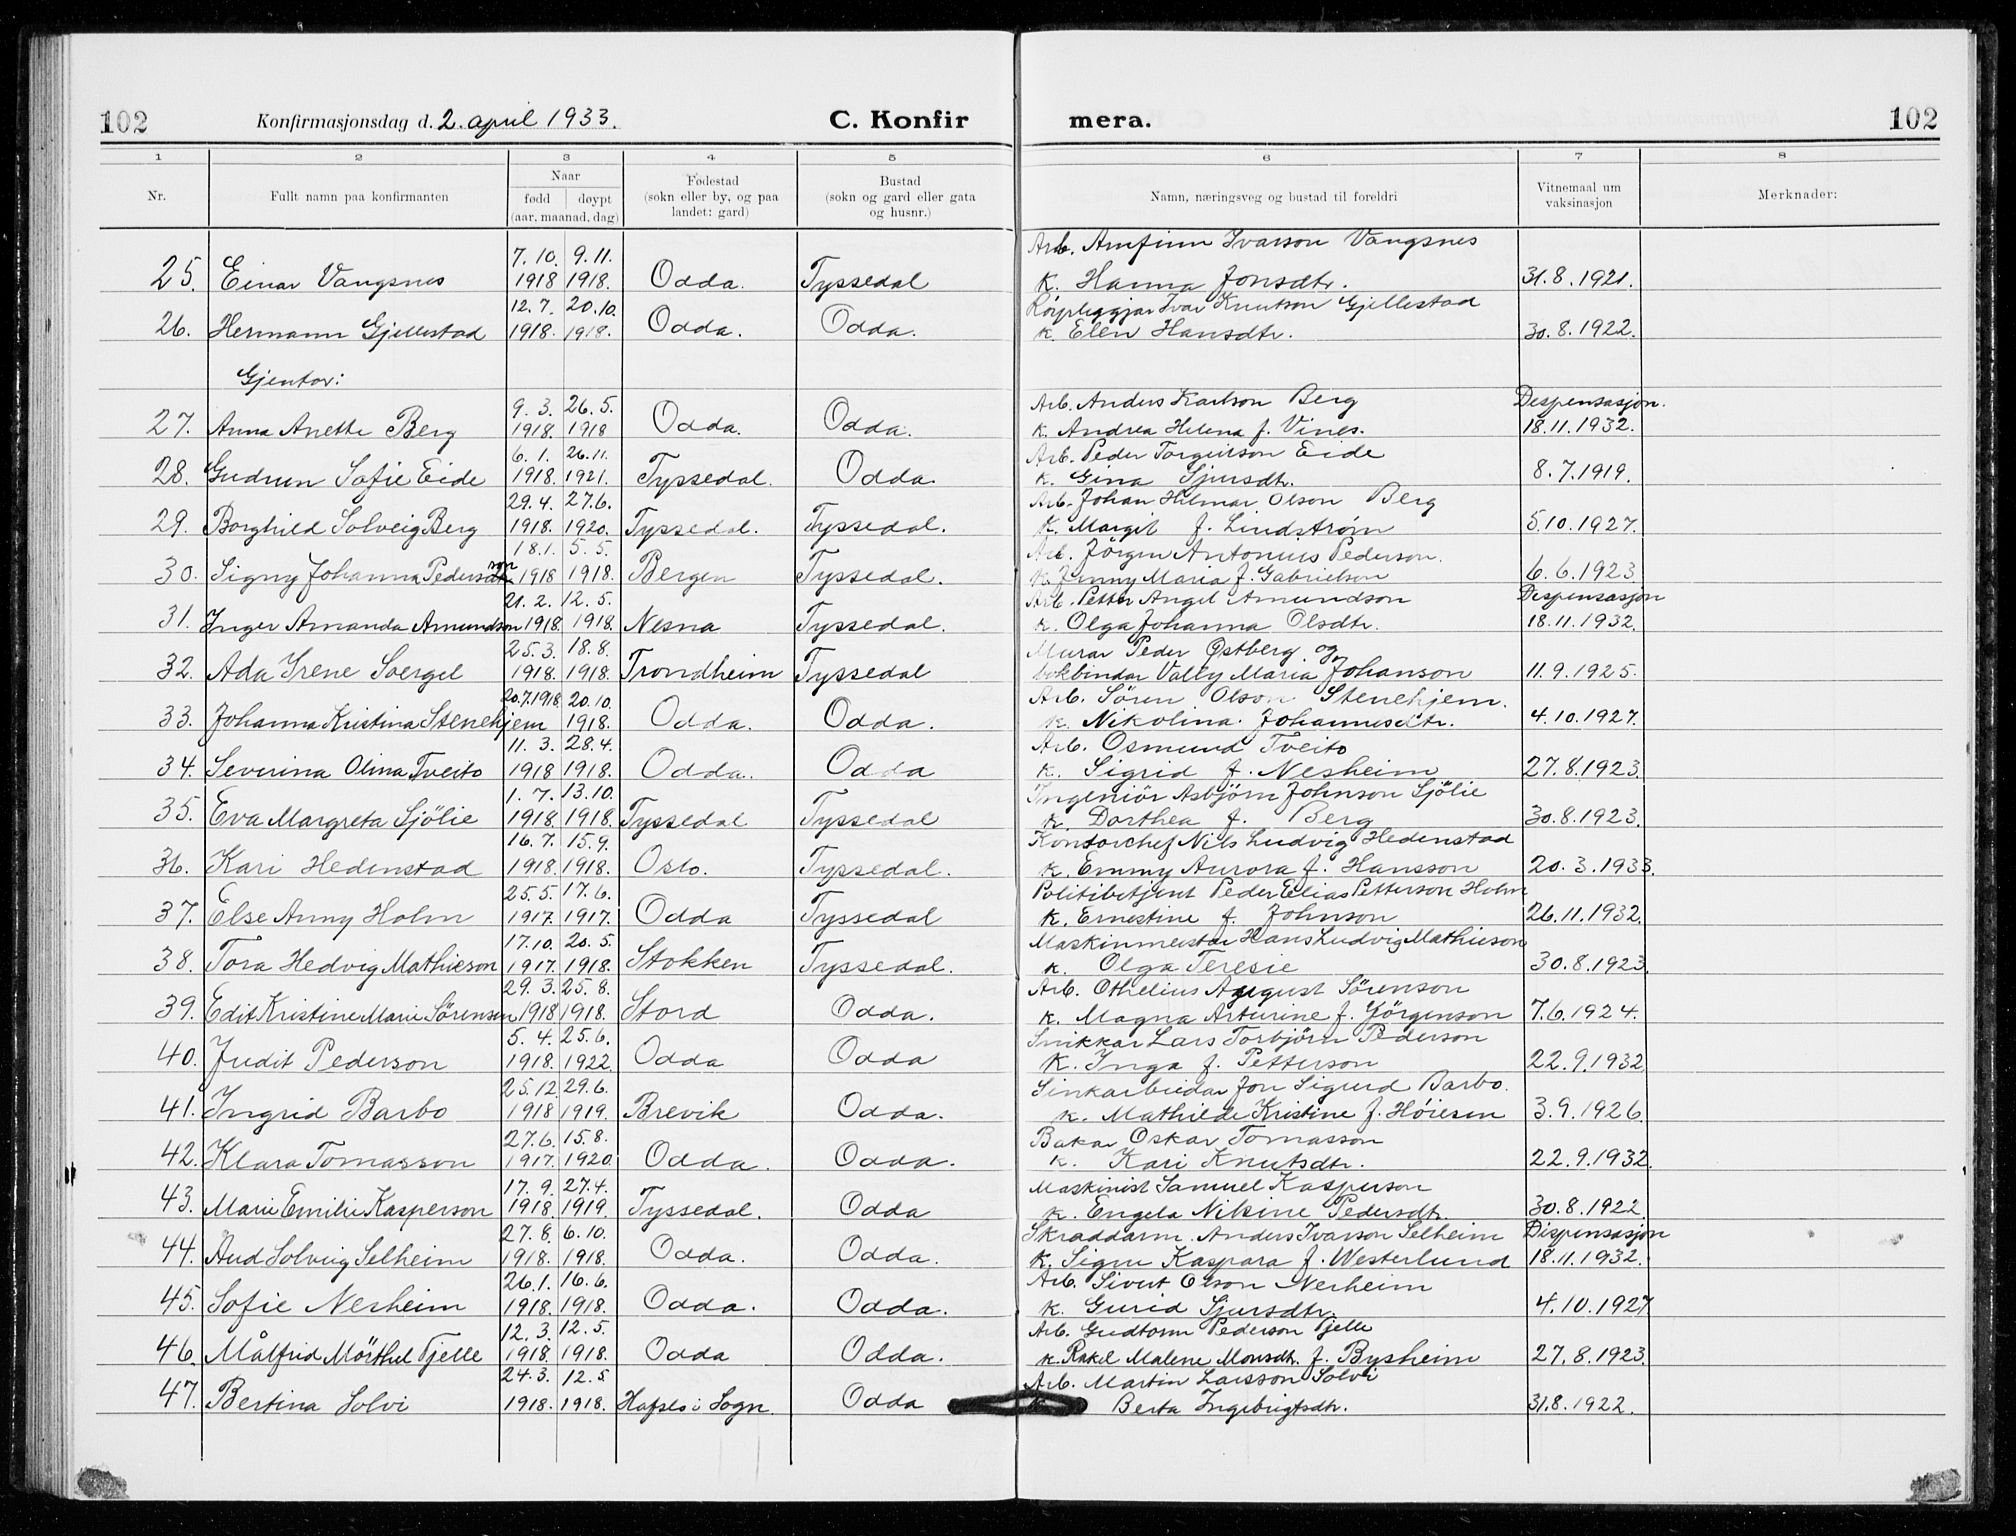 102
Konfirmasjonsdag d. 2. april 1933.
C. Konfirmera.
102
1 2 3 4 5 6 7 8
Nr.
Fullt namn paa konfirmanten
Naar
født døypt
(aar, maanad, dag)
Fødestad
(sokn eller by, og paa
landet: gard)
Bustad
(sokn og gard eller gata
og husnr.)
Namn, næringsveg og bustad til foreldri
Vitnemaal um
vaksinasjon
Merknader:
7. 10. 9. 11. Arb. Arnfinn Ivarson Vangsnes
25. Einar Vangsnes 1918 1918. Odda. Tyssedal K. Hanna Jonsdtr. 31.8.1921.
12. 7. 20. 10. Rörpleggjar Ivar Knutson Gjellestad
26. Hermann Gjellestad 1918. 1918. Odda. Odda. K. Elen Hansdtr. 30.8.1922.
Gjentor:
9. 3. 26. 5. Arb. Anders Karlson Berg Despensasjon.
27. Anna Anette Berg 1918. 1918 Odda. Odda. K. Andrea Helena f. Vines. 18.11.1932.
6. 1. 26. 11. Arb. Peder Torgeirson Eide
28. Gudrun Sofie Eide 1918. 1921. Tyssedal. Odda. K. Gina Sjursdtr. 8.7.1919.
29. 4. 27. 6. Arb. Johan Hilmar Olson Berg
29. Borghild Solveig Berg 1918. 1920. Tyssedal. Tyssedal. K. Margit f. Lindstrøm 5.10.1927.
18. 1. 5. 5. Arb. Jörgen Antonius Pederson.
30. Signy Johanna Pederson 1918 1918. Bergen Tyssedal. K. Jenny Maria f. Gabrielson 6.6.1923
21. 2. 12. 5. Arb. Petter Angel Amundson Despensasjon
31. Inger Amanda Amundson 1918. 1918. Nesna Tyssedal. K. Olga Johanna Olsdtr. 18.11.1932.
25. 3. 18. 8. Murar Peder Østberg og
32. Ada Irene Soergel 1918. 1918. Trondheim Tyssedal bokbindar Vally Maria Johanson 11.9.1925.
20.7.1918. 20. 10. Arb. Sören Olson Stenehjem.
33. Johanna Kristina Stenehjem 1918. Odda. Odda. K. Nikolina Johannesdtr. 4.10.1927.
11. 3. 28. 4. Arb. Osmund Tveito
34. Severina Olina Tveito 1918 1918. Odda. Odda K. Sigrid f. Nesheim 27.8.1923.
1. 7. 13. 10. Ingeniör Asbjörn Johnson Sjölie
35. Eva Margreta Sjölie 1918. 1918. Tyssedal Tyssedal K. Dorthea f. Berg 30.8.1923.
16. 7. 15. 9. Kontorchef Nils Ludvig Hedenstad
36. Kari Hedenstad 1918. 1918. Oslo. Tyssedal. K. Emmy Aurora f. Hansson 20.3.1933.
25. 5. 17. 6. Politibetjent Peder Elias Petterson Holm
37. Else Anny Holm 1917. 1917. Odda Tyssedal K. Ernestine f. Johnson 26.11.1932.
17. 10. 20. 5. Maskinmeistar Hans Ludvig Mathieson
38. Tora Hedvig Mathieson 1917. 1918. Stokken Tyssedal. K. Olga Teresie 30.8.1923.
29. 3. 25. 8. Arb. Othelius August Sörenson
39. Edit Kristine Marie Sörensen 1918 1918. Stord Odda. K. Magna Arturine f. Jörgenson 7.6.1924.
5. 4. 25. 6. Snikkar Lars Torbjörn Pederson
40. Judit Pederson 1918. 1922. Odda Odda K. Inga f. Petterson 22.9.1932
25. 12. 29. 6. Sinkarbeidar Jon Sigurd Barbo.
41. Ingrid Barbo 1918 1919. Brevik Odda. K. Mathilde Kristine f. Höiesen 3.9.1926.
27. 6. 15. 8. Bakar Oskar Tomasson
42. Klara Tomasson 1917. 1920. Odda. Odda. K. Kari Knutsdtr. 22.9.1932.
17. 9. 27. 4. Maskinist Samuel Kasperson
43. Marie Emilie Kasperson 1918. 1919. Tyssedal. Odda K. Engela Nikine Pedersdtr. 30.8.1922
27. 8. 6. 10. Skraddarm. Anders Ivarson Selheim Dispensasjon
44. Aud Solveig Selheim 1918. 1918. Odda. Odda. K. Signe Kaspara f. Westerlund 18.11.1932.
26. 1. 16. 6. Arb. Sivert Olson Nesheim
45. Sofie Nesheim 1918. 1918. Odda. Odda. K. Gurid Sjursdtr. 4.10.1927
12. 3. 12. 5. Arb. Gudtorm Pederson Tjelle
46. Målfrid Mörthel Tjelle 1918. 1918. Odda Odda. K. Rakel Malene Monsdtr. f. Bysheim 27.8.1923.
24. 3. 12. 5 Arb. Martin Larsson Solvi
47. Bertina Solvi 1918. 1918. Hafslo i Sogn. Odda K. Berta Ingebrigtsdtr. 31.8.1922.